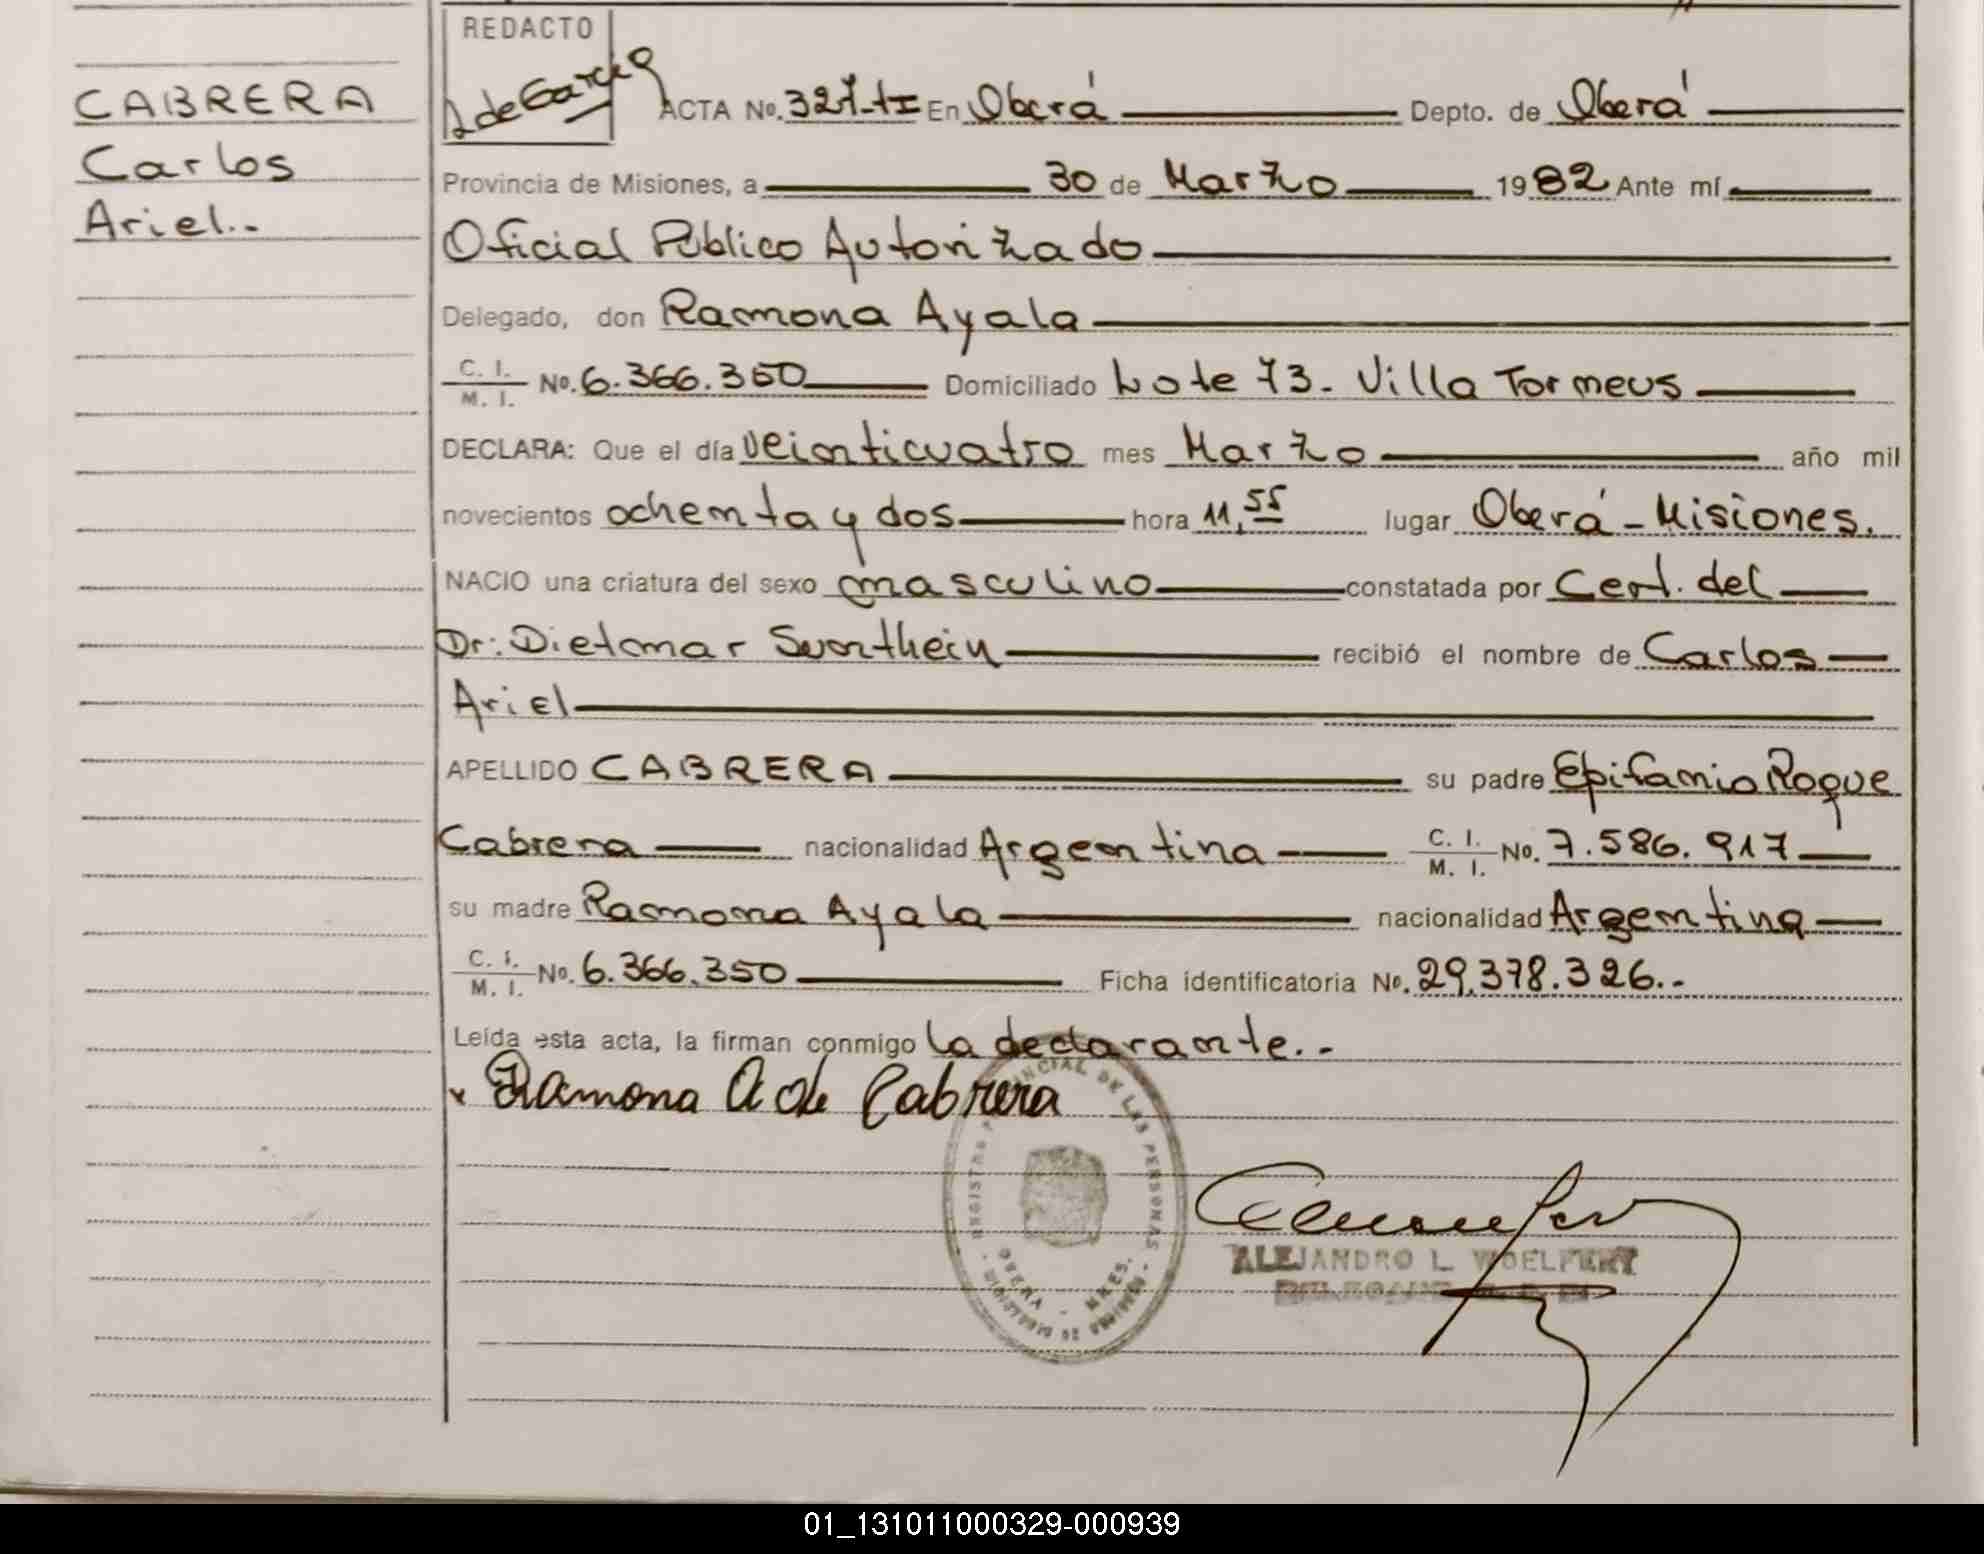 REDACTO
CABRERA
Carlos
Ariel.-
de Garcia
ACTA No. 327-tI En Oberá Depto. de Oberá
Provincia de Misiones, a 30 de Marzo 1982 Ante mí
Oficial Público Autorizado
Delegado, don Ramona Ayala
C. I. / M. I. No. 6.366.350 Domiciliado Lote 73 - Villa Tormeus
DECLARA: Que el día veinticuatro mes Marzo año mil
novecientos ochenta y dos hora 11,55 lugar Oberá - Misiones.
NACIO una criatura del sexo masculino constatada por Cert. del
Dr: Dietmar Sonthein recibió el nombre de Carlos
Ariel
APELLIDO CABRERA su padre Epifanio Roque
Cabrera nacionalidad Argentina C. I. / M. I. No. 7.586.917
su madre Ramona Ayala nacionalidad Argentina
C. I. / M. I. No. 6.366.350 Ficha identificatoria No. 29.378.326.-
Leída esta acta, la firman conmigo la declarante.-
x Ramona A de Cabrera
REGISTRO PROVINCIAL DE LAS PERSONAS
OBERA - MNES.
MINISTERIO DE GOBIERNO
ALEJANDRO L. WOELFERT
01_131011000329-000939